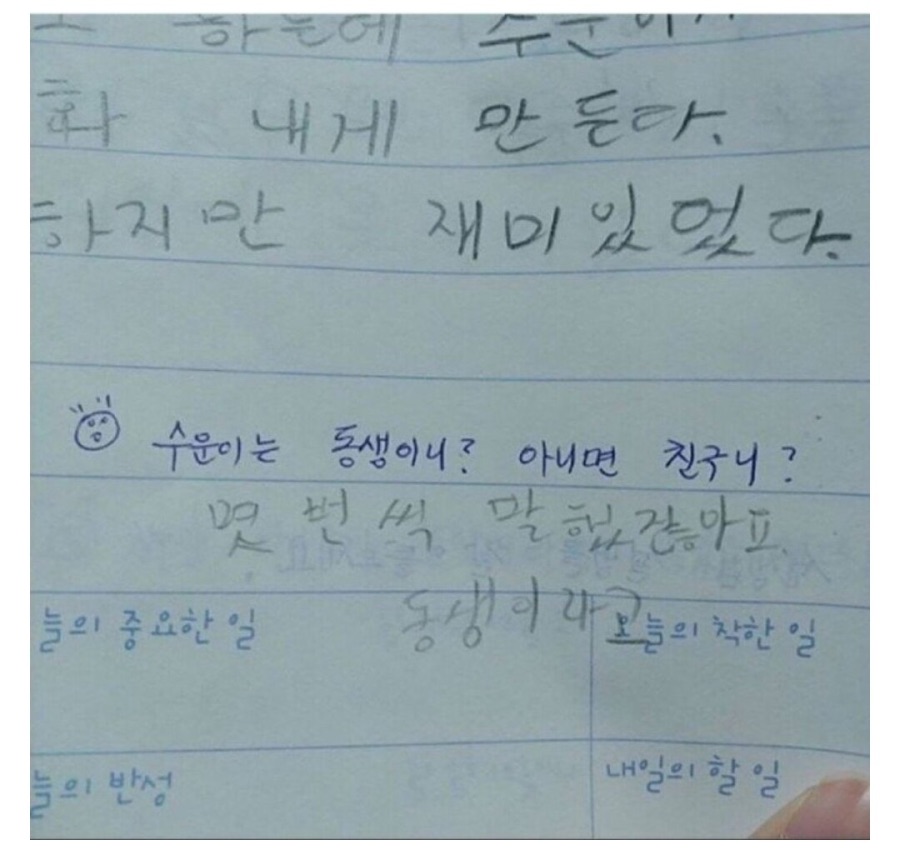 하는에 수운이가
화 내게 만든다.
하지만 재미있었다.
수운이는 동생이니? 아니면 친구니?
몇 번 씩 말 했잖아요.
동생이라고
늘의 중요한 일 오늘의 착한 일
늘의 반성 내일의 할 일